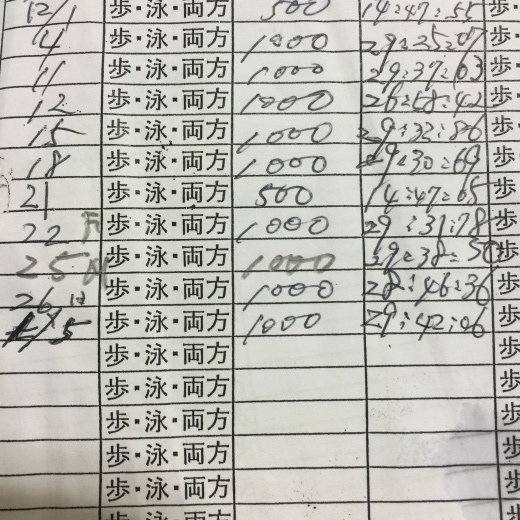 12/1 歩・泳・両方 500 14:47:55 歩・
4 歩・泳・両方 1000 29:25:07 歩・
11 歩・泳・両方 1000 29:37:03 歩
12 歩・泳・両方 1000 26:58:42 歩
15 歩・泳・両方 1000 29:32:86 歩
18 歩・泳・両方 1000 29:30:69 歩
21 歩・泳・両方 500 14:47:65 歩
22 歩・泳・両方 1000 29:31:78 歩
25 歩・泳・両方 1000 歩
26 歩・泳・両方 1000 28:46:36 歩
1/5 歩・泳・両方 1000 29:42:06 歩
歩・泳・両方 歩
歩・泳・両方 歩
歩・泳・両方 歩
歩・泳・両方 歩
歩・泳・両方 歩
歩・泳・両方